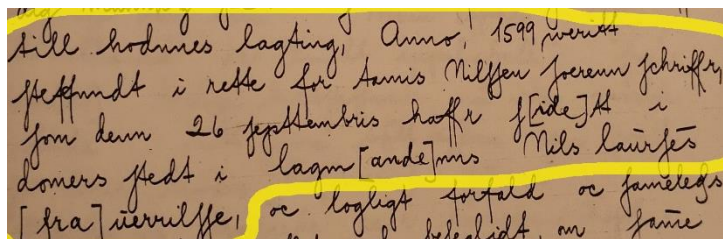 till hodnnes lagting, Anno, 1599 weritt
steffnndt i rette for tamis Nilssen soerenn schriffr,
som denn 26 septtembris haffr s[ide]tt i
domers stedt i lagm[ande]nns Nils laũrses
[fra]ũerrilsse, oc logligt forfald oc